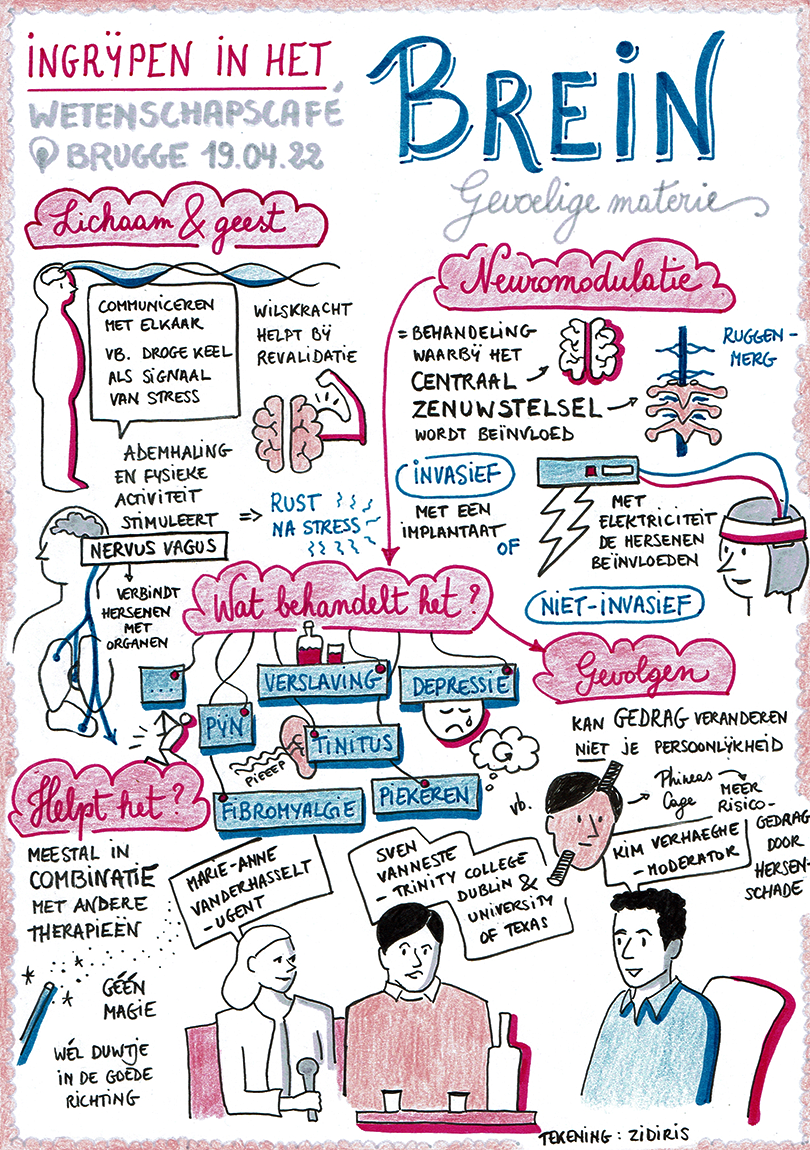 INGRIJPEN IN HET
BREIN
WETENSCHAPSCAFÉ
BRUGGE 19.04.22
Gevoelige materie
Lichaam & geest
COMMUNICEREN
MET ELKAAR
VB. DROGE KEEL
ALS SIGNAAL
VAN STRESS
WILSKRACHT
HELPT BIJ
REVALIDATIE
ADEMHALING
EN FYSIEKE
ACTIVITEIT
STIMULEERT
NERVUS VAGUS
=> RUST
NA STRESS
VERBINDT
HERSENEN
MET
ORGANEN
Neuromodulatie
= BEHANDELING
WAARBIJ HET
CENTRAAL
ZENUWSTELSEL
WORDT BEÏNVLOED
RUGGEN-
MERG
INVASIEF
MET EEN
IMPLANTAAT
OF
MET
ELEKTRICITEIT
DE HERSENEN
BEÏNVLOEDEN
NIET-INVASIEF
Wat behandelt het?
...
VERSLAVING
DEPRESSIE
PIJN
TINITUS
PIEEEP
FIBROMYALGIE
PIEKEREN
Gevolgen
KAN GEDRAG VERANDEREN
NIET JE PERSOONLIJKHEID
vb.
Phineas
Cage
MEER
RISICO-
GEDRAG
DOOR
HERSEN-
SCHADE
Helpt het?
MEESTAL IN
COMBINATIE
MET ANDERE
THERAPIEËN
GÉÉN
MAGIE
WÉL DUWTJE
IN DE GOEDE
RICHTING
MARIE-ANNE
VANDERHASSELT
- UGENT
SVEN
VANNESTE
- TRINITY COLLEGE
DUBLIN &
UNIVERSITY
OF TEXAS
KIM VERHAEGHE
- MODERATOR
TEKENING: ZIDIRIS